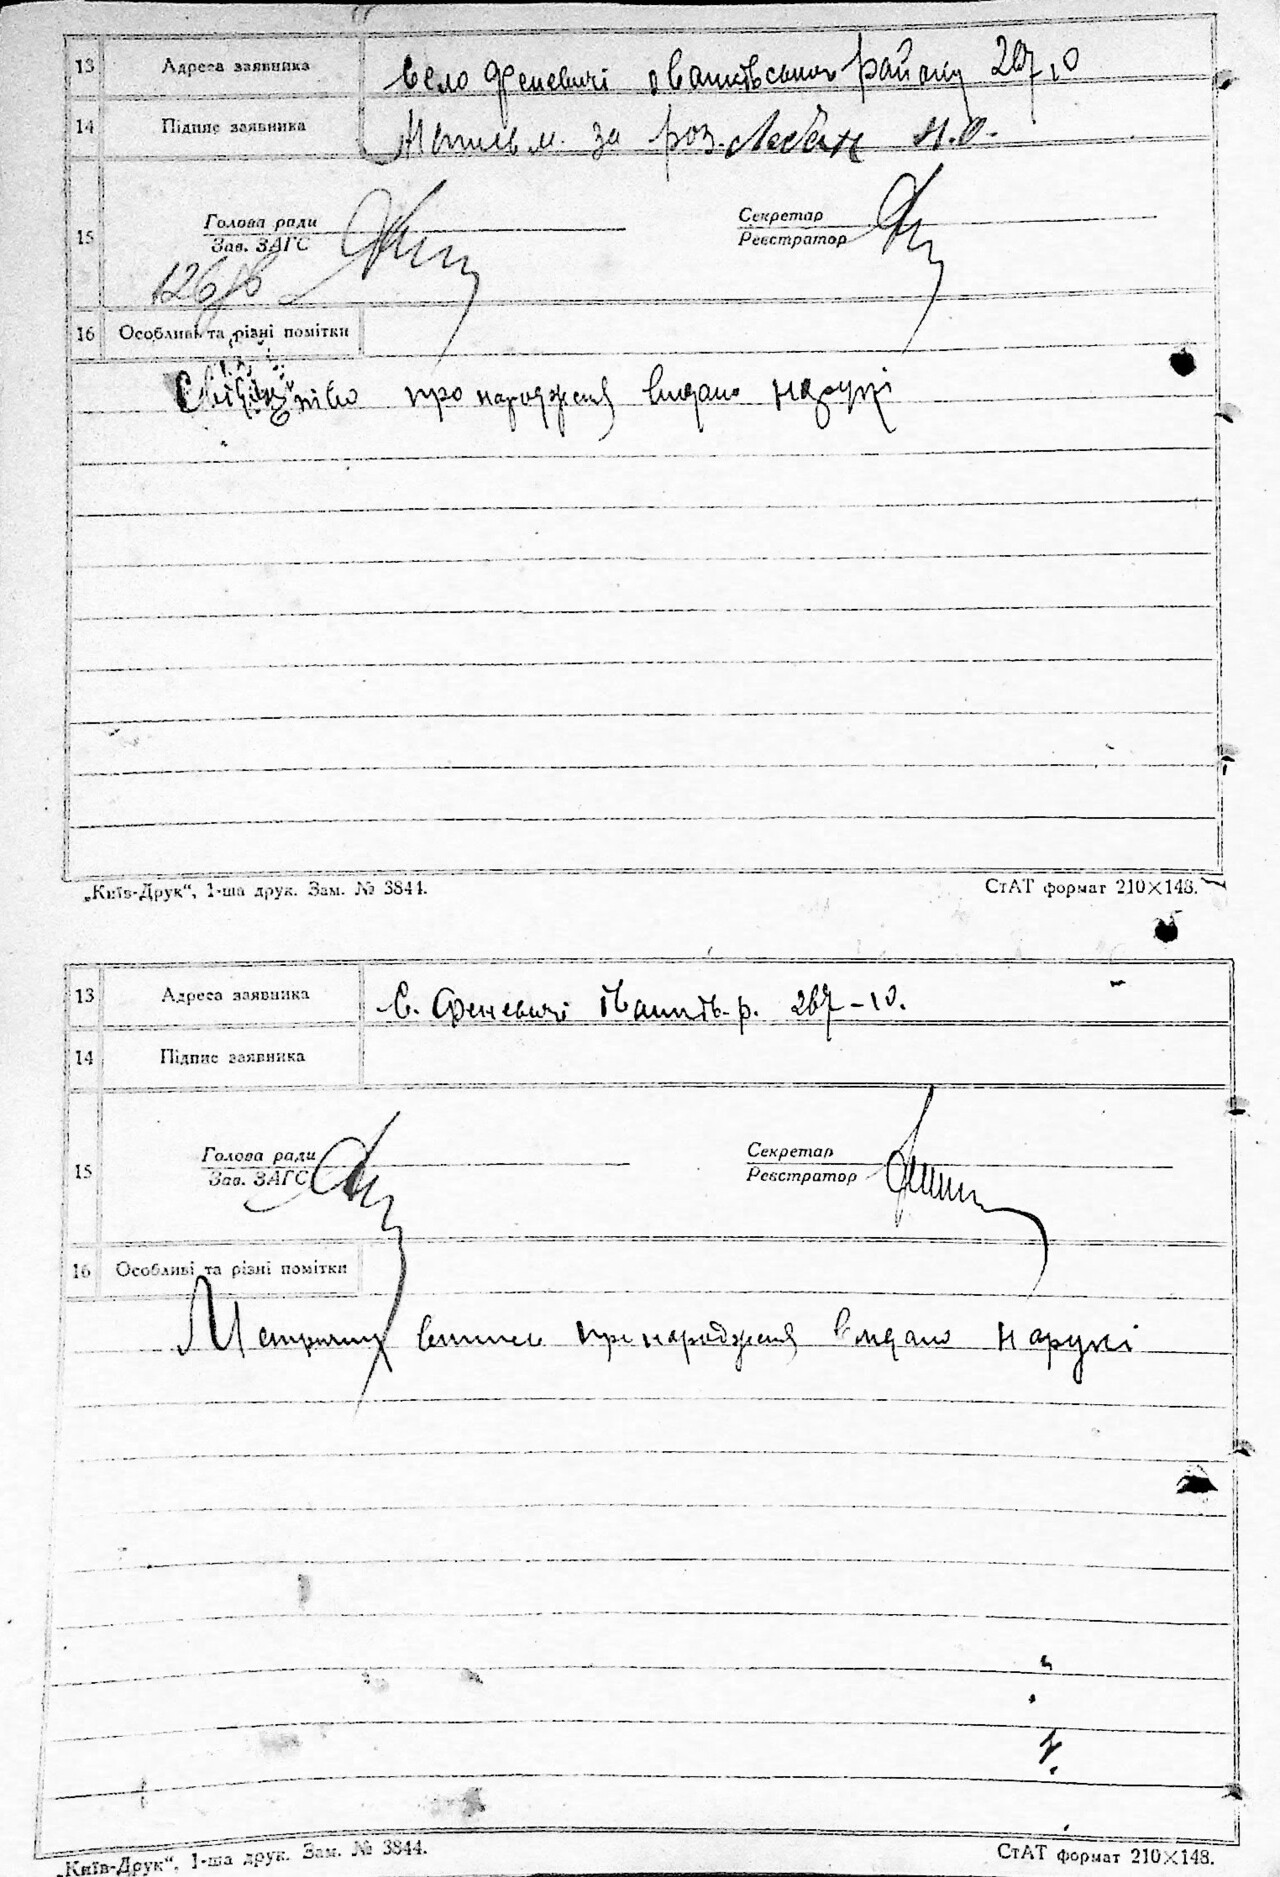 13 Адреса заявника село Феневичі Іванківського району 267,10
14 Підпис заявника за роз. Лебан
15 Голова ради Секретар
Зав. ЗАГС Реєстратор
16 Особливі та різні помітки
Свідоцтво про народженя видано на руки
„Київ-Друк“, 1-ша друк. Зам. № 3844. СтАТ формат 210×148.
13 Адреса заявника с. Феневичі Іванків-р. 267-10.
14 Підпис заявника
15 Голова ради Секретар
Зав. ЗАГС Реєстратор
16 Особливі та різні помітки
про народженя видано на рукі
„Київ-Друк“, 1-ша друк. Зам. № 3844. СтАТ формат 210×148.